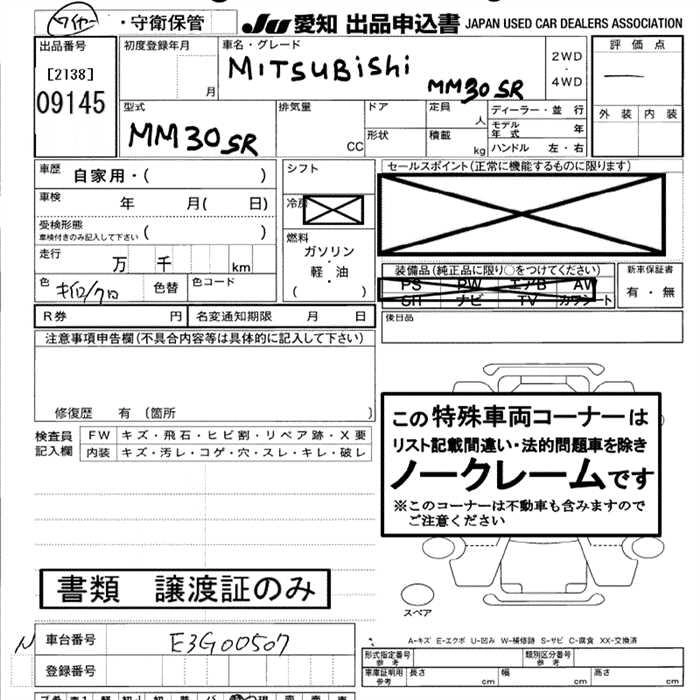 タイヤー ・守衛保管
JU 愛知 出品申込書 JAPAN USED CAR DEALERS ASSOCIATION
出品番号
[2138]
09145
初度登録年月
月
車名・グレード
MITSUBISHI
MM30SR
2WD
・
4WD
評価点
外装 内装
型式
MM30SR
排気量
CC
ドア
形状
定員
人
積載
kg
ディーラー・並行
モデル年式 年
ハンドル 左・右
車歴 自家用・( )
車検 年 月( 日)
受検形態
車検付きのみ記入して下さい ( )
走行 万 千 km
色 キイロ/クロ 色替 色コード
シフト
冷房
燃料
ガソリン
・
軽・油
( )
セールスポイント(正常に機能するものに限ります)
装備品(純正品に限り○をつけてください)
PS PW エアB AW
SR ナビ TV カワシート
新車保証書
有・無
R券 円 名変通知期限 月 日
後日品
注意事項申告欄(不具合内容等は具体的に記入して下さい)
修復歴 有 (箇所 )
検査員記入欄
FW キズ・飛石・ヒビ割・リペア跡・X要
内装 キズ・汚レ・コゲ・穴・スレ・キレ・破レ
この特殊車両コーナーは
リスト記載間違い・法的問題車を除き
ノークレームです
※このコーナーは不動車も含みますので
ご注意ください
書類 譲渡証のみ
スペア
A-キズ E-エクボ U-凹み W-補修跡 S-サビ C-腐食 XX-交換済
N 車台番号 E3G00507
登録番号
形式指定番号
参考
類別区分番号
参考
車庫証明用
参考
長さ cm 幅 cm 高さ cm